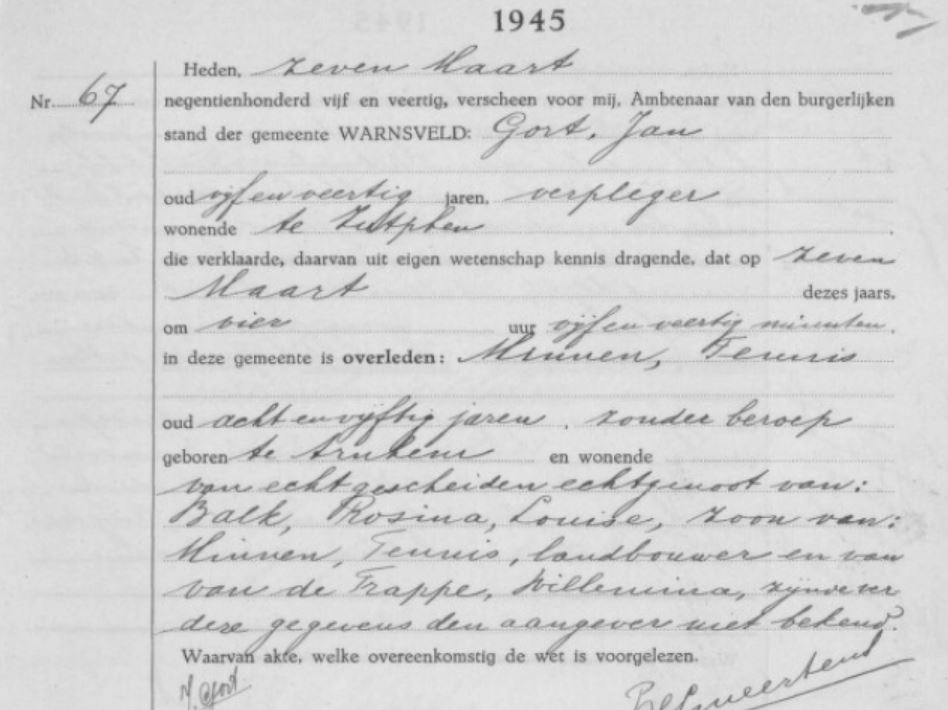 1945
Heden, zeven Maart
Nr. 67 negentienhonderd vijf en veertig, verscheen voor mij, Ambtenaar van den burgerlijken
stand der gemeente WARNSVELD: Gort, Jan
oud vijf en veertig jaren, verpleger
wonende te Zutphen
die verklaarde, daarvan uit eigen wetenschap kennis dragende, dat op zeven
Maart dezes jaars,
om vier uur vijf en veertig minuten,
in deze gemeente is overleden: Minnen, Teunis
oud acht en vijftig jaren, zonder beroep
geboren te Arnhem en wonende
van echt gescheiden echtgenoot van:
Balk, Rosina, Louise, zoon van:
Minnen, Teunis, landbouwer en van
van de Trappe, Willemina, zijnde ver
dere gegevens den aangever niet bekend.
Waarvan akte, welke overeenkomstig de wet is voorgelezen.
J. Gort